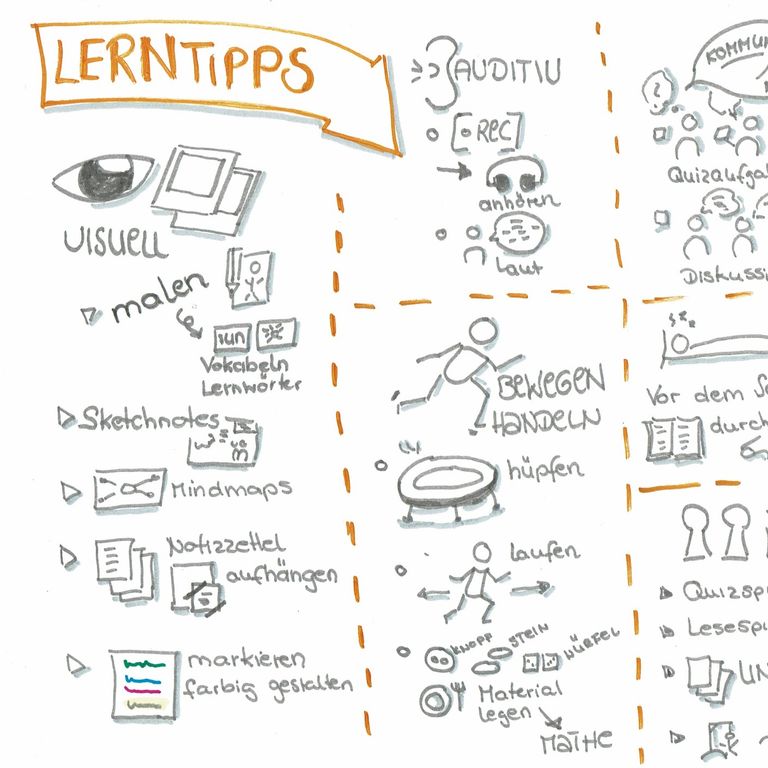 LERNTIPPS
VISUELL
malen
sun
Vokabeln
Lernwörter
Sketchnotes
Mindmaps
Notizzettel
aufhängen
markieren
farbig gestalten
AUDITIV
REC
anhören
laut
BEWEGEN
HANDELN
hüpfen
laufen
KNOPF STEIN WÜRFEL
Material
legen
MATHE
KOMMUN
?
Quizaufga
Diskussi
Vor dem Sc
durch
Quizspi
Lesespi
UN